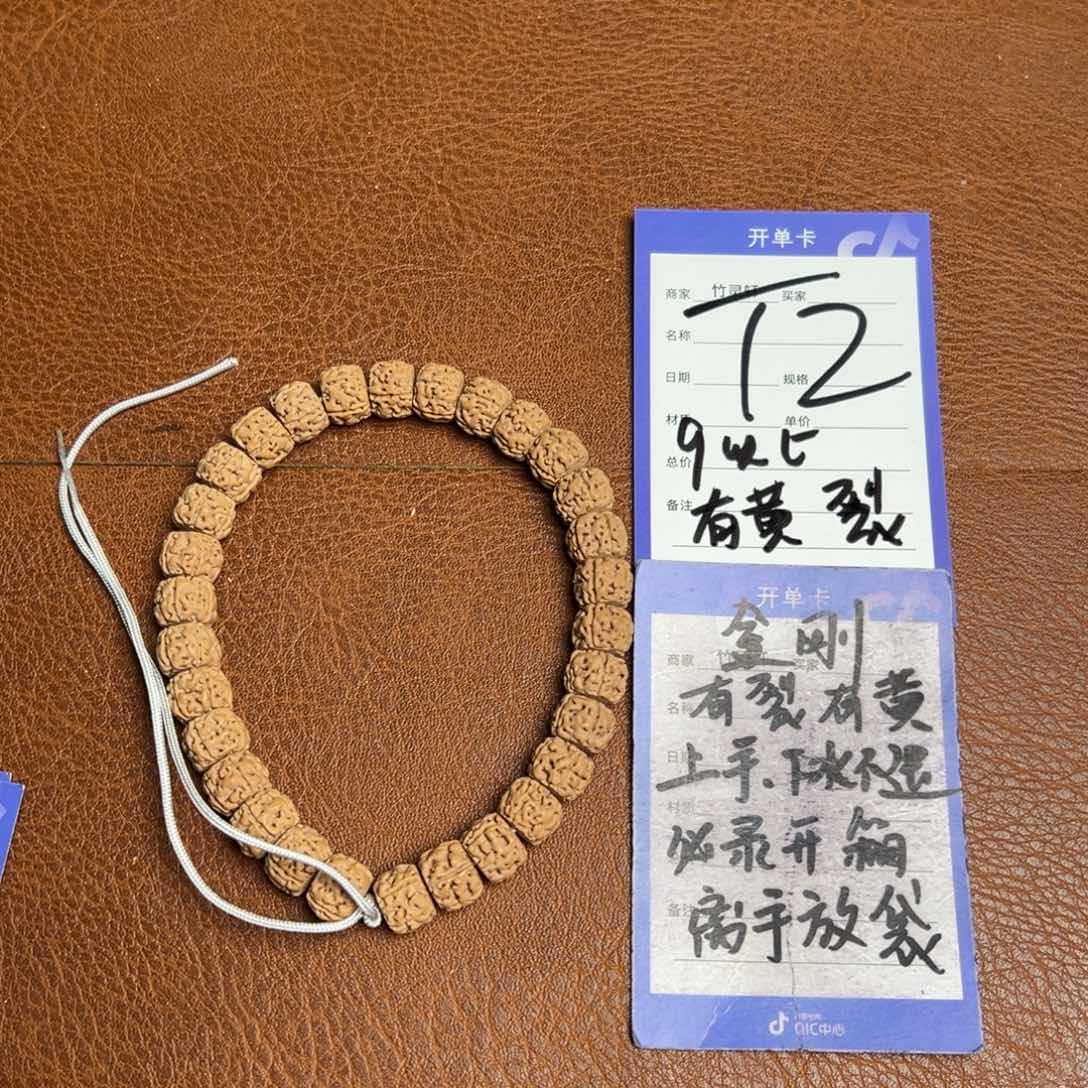 开单卡
商家 竹灵轩 买家
名称
日期 规格
T2
材质 单价
9以上
总价
备注
有黄 裂
开单卡
金刚
商家 竹 买家
有裂有黄
名称
上手、下水不退
日期
材质
必录开箱
备注
离手放袋
QIC中心